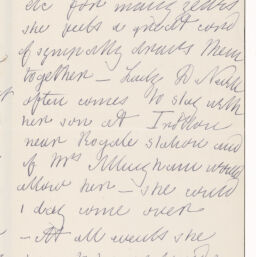 etc for many years
she feels a great cord
of sympathy draws them
together — Lady D Neill
often comes to stay with
her son at
near Rogate station and
if Mrs Allingham would
allow her — she would
1 day come over
— At all events she